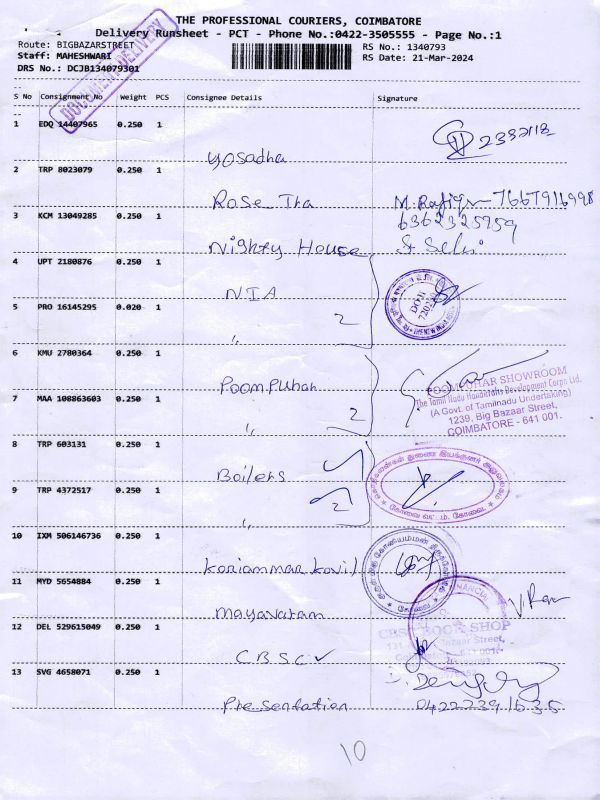 THE PROFESSIONAL COURIERS, COIMBATORE
Delivery Runsheet - PCT - Phone No.:0422-3505555 - Page No.:1
Route: BIGBAZARSTREET
RS No.: 1340793
Staff: MAHESHWARI
RS Date: 21-Mar-2024
DRS No.: DCJB134079301
DOCUMENT DELIVERY
S No Consignment No Weight PCS Consignee Details Signature
1 EDQ 14407965 0.250 1
Yosadha
2 TRP 8023079 0.250 1
Rose Tha M. Rafiq 7667916998
6362325959
3 KCM 13049285 0.250 1
Nighty House S. Selvi
4 UPT 2180876 0.250 1
NIA
5 PRO 16145295 0.020 1
" 2
6 KMU 2780364 0.250 1
Poompuhar
POOMPUHAR SHOWROOM
The Tamil Nadu Handicrafts Development Corpn Ltd.
(A Govt. of Tamilnadu Undertaking)
1239, Big Bazaar Street,
COIMBATORE - 641 001.
7 MAA 108863603 0.250 1
" 2
8 TRP 603131 0.250 1
Boilers
9 TRP 4372517 0.250 1
" 2
10 IXM 506146736 0.250 1
koniammar kovil
11 MYD 5654884 0.250 1
Mayavaram
CBSC BOOK SHOP
12 DEL 529615049 0.250 1
CBSC
13 SVG 4658071 0.250 1
Presentation 0422 2391635
10